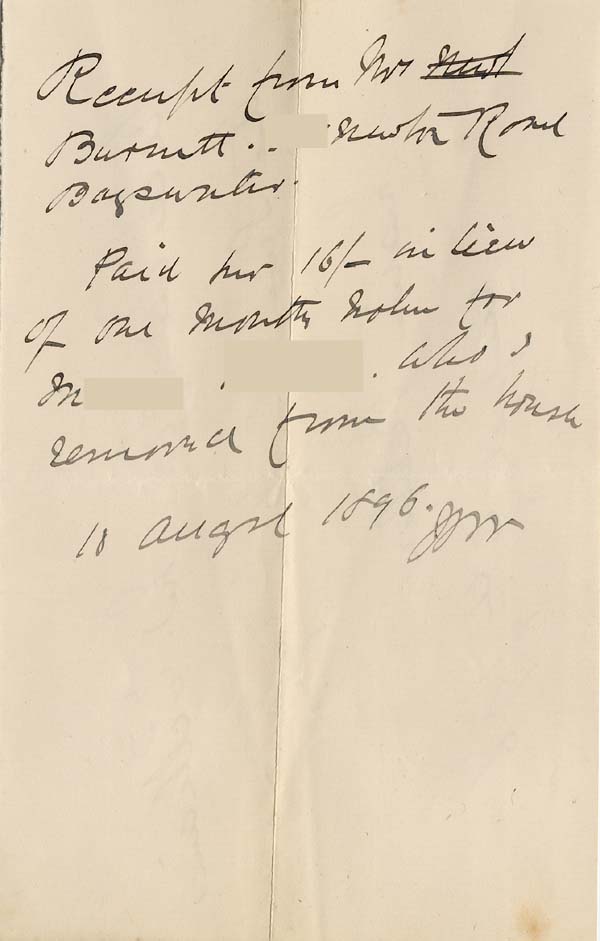 Receipt from Mrs
Burnett .. Newton Road
Bayswater.
Paid her 16/- in lieu
of one months notice for
M who I
removed from the house
10 August 1896.